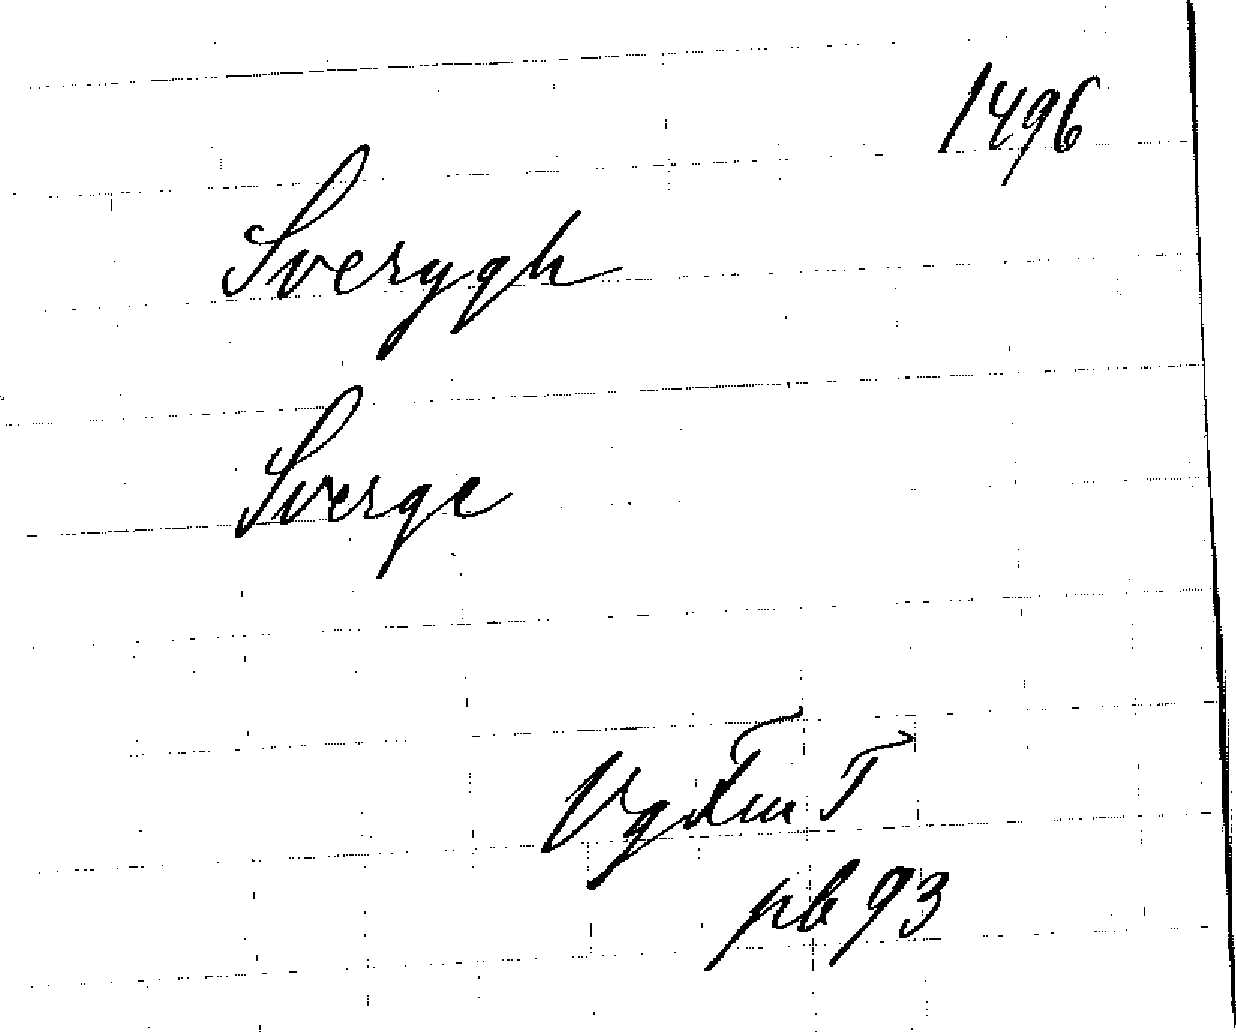 1496
Sverygh
Sverge
pb 93